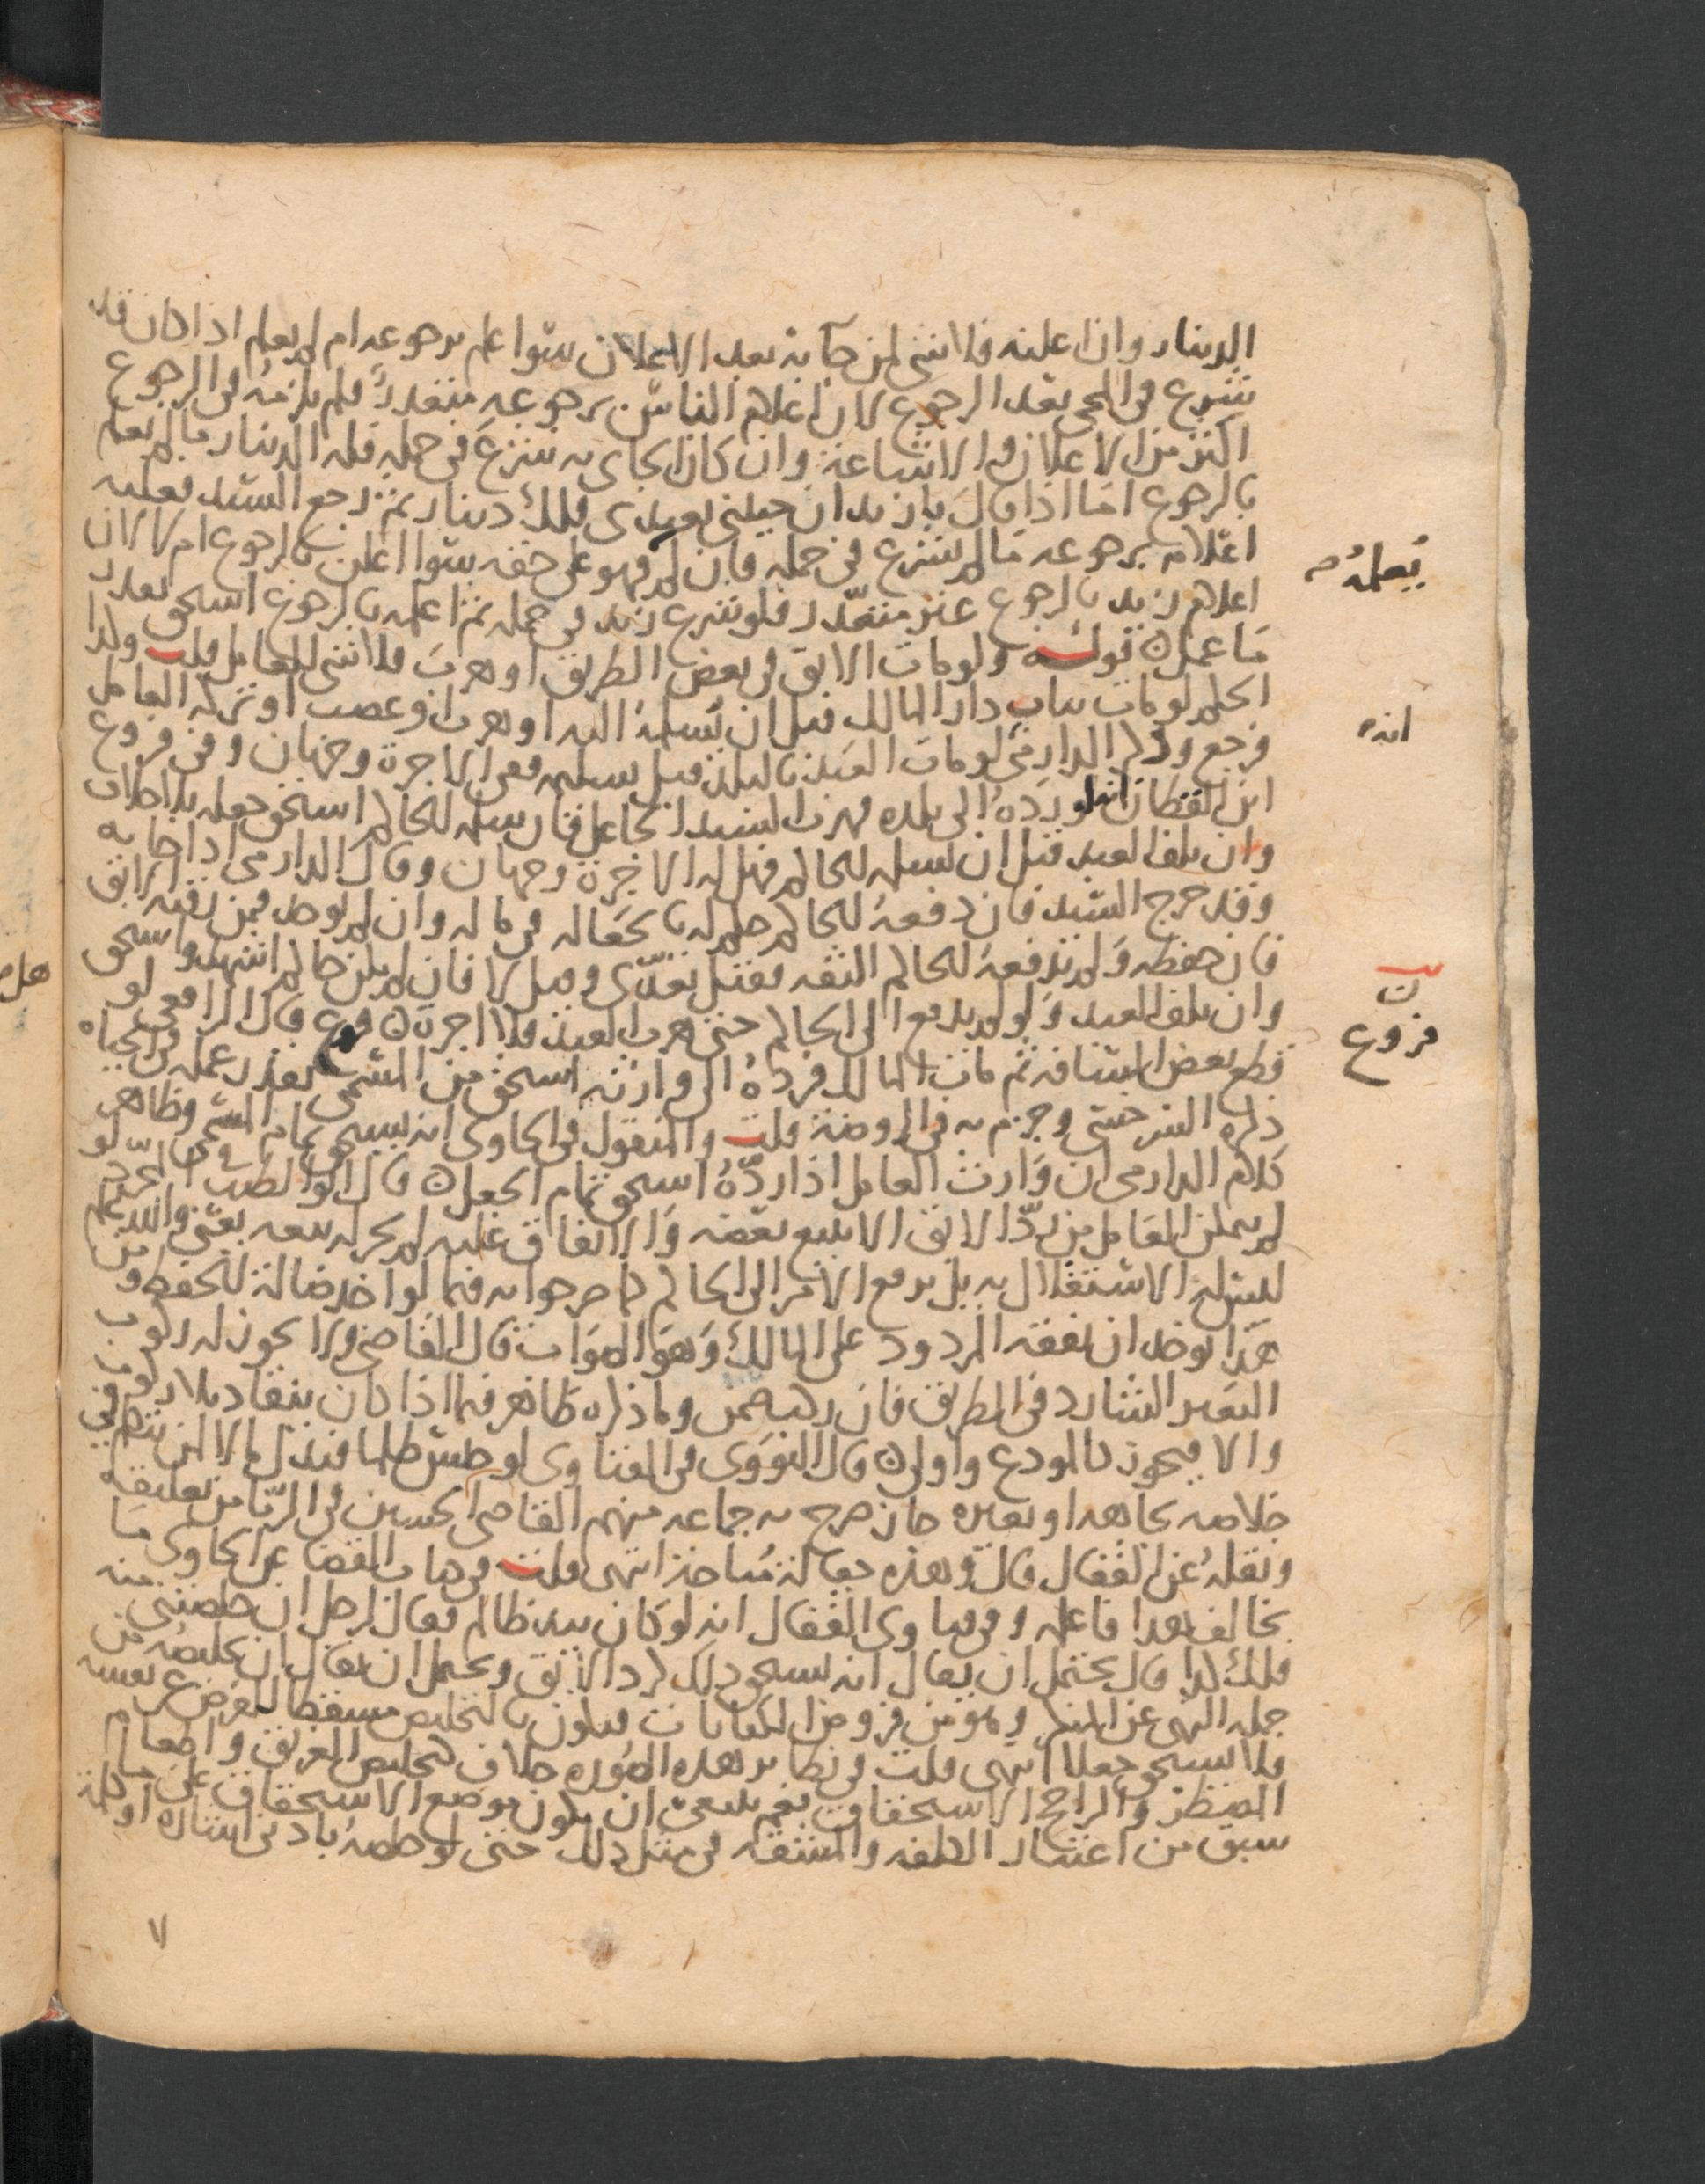 الدينار وان اعلنه فلا شي لمن جا به بعد الاعلان سوا علم برجوعه ام لم يعلم اذا كان قد
شرع في المجي بعد الرجوع لان اعلام الناس برجوعه متعذر فلم يلزمه في الرجوع
اكثر من الاعلان والاشاعة وان كان الجاي به شرع في حمله فله الدينار ما لم يعلم
بالرجوع اما اذا قال يا زيد ان جيتني بعبدي فلك دينار ثم رجع السيد فعليه
اعلامه برجوعه ما لم يشرع في حمله فان لم فهو على حقه سوا اعلن بالرجوع ام لا لان
اعلام زيد بالرجوع غير متعذر فلو شرع زيد في حمله ثم اعلمه بالرجوع استحق بعد
ما عمل قوله ولو مات الابق في بعض الطريق او هرب فلا شي للعامل قلت وكذا
الحكم لو مات بباب دار المالك قبل ان يسلمه اليه او هرب او غصب او تركه العامل
فرجع وذكر الدارمي لو مات العبد بالبلد قبل تسليمه ففي الاجرة وجهان وفي فروع
ابن القطان انه لو رده الى بلده فهرب السيد الجاعل فان سلمه للحاكم استحق جعله بلا خلاف
وان تلف العبد قبل ان يسلمه للحاكم فهل له الاجرة وجهان وقال الدارمي اذا جا به
وقد خرج السيد فان دفعه للحاكم حكم له بالجعالة في ماله وان لم يوجد فمن رقبة الابق
فان حفظه ولم يدفعه للحاكم الثقة فقيل تعدى وقيل لا فان لم يكن حاكم اشهد واستحق
وان تلف العبد ولو لم يدفع الى الحاكم حتى هرب العبد فلا اجرة فرع قال الرافعي لو
قطع بعض المسافة ثم مات المالك فرده الى وارثه استحق من المسمى بقدر عمله في الحياة
ذكره السرخسي وجزم به في الروضة قلت والمنقول في الحاوي انه يستحق تمام المسمى وظاهر
كلام الدارمي ان وارث العامل اذا رده استحق تمام الجعل قال ابو الطيب في المجرد لو
لم يتمكن العامل من رد الابق الا ببيع بعضه والانفاق عليه لم يجز له بيعه يعني والله اعلم
ليس له الاستقلال به بل يرفع الامر الى الحاكم كما صرحوا به فيما لو اخذ ضالة للحفظ ومن
هذا يوخذ ان نفقة المردود على المالك وهو الصواب قال القاضي ولا يجوز له ركوب
البعير الشارد في الطريق فان ركبه ضمن وما ذكره ظاهر فيما اذا كان ينقاد بلا ركوب
والا فيجوز كالمودع واولى قال النووي في الفتاوى لو حبس ظلما فبذل مالا لمن يتكلم في
خلاصه بجاهه او بغيره جاز صرح به جماعة منهم القاضي الحسين في الربا من تعليقه
ونقله عن القفال قال وهذه جعالة مباحة انتهى قلت في هبات القضا عن الحاوي ما
يخالف هذا فاعلمه وفي فتاوى القفال انه لو كان بيد ظالم فقال لرجل ان خلصتني منه
فلك كذا قال يحتمل ان يقال انه يستحق ذلك كرد الابق ويحتمل ان يقال ان تخليصه من
جملة النهي عن المنكر وهو من فروض الكفايات فيكون بالتخليص مسقطا للفرض عن نفسه
فلا يستحق جعلا انتهى قلت في نظاير هذه الصورة خلاف كتخليص الغريق واطعام
المضطر والراجح الاستحقاق نعم ينبغي ان يكون موضع الاستحقاق على ما
سبق من اعتبار الكلفة والمشقة في مثل ذلك حتى لو خلصه بادنى اشارة او كلمة
لا
يعلمه
انه
فروع